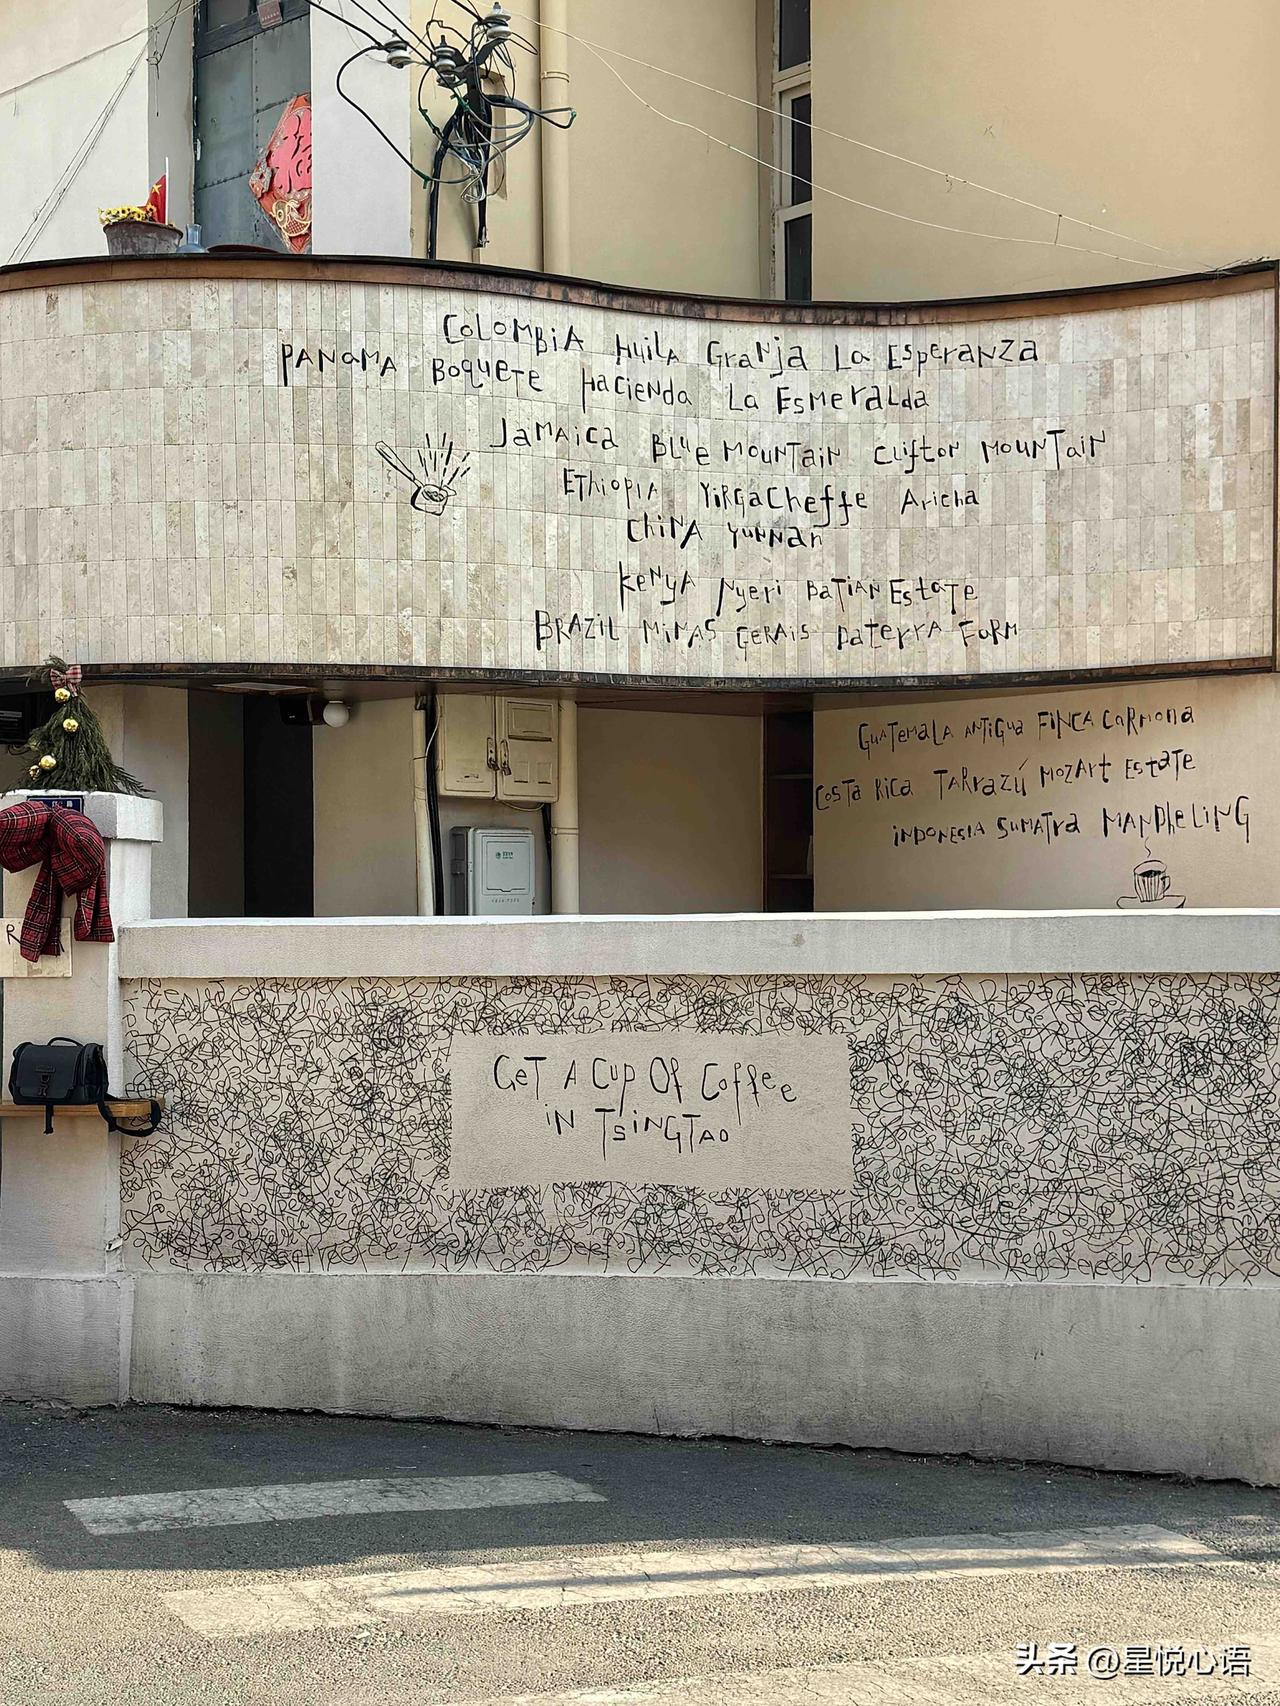 COLOMBIA HUILA GRANJA LA ESPERANZA
PANAMA BOQUETE HACIENDA LA ESMERALDA
JAMAICA BLUE MOUNTAIN CLIFTON MOUNTAIN
ETHIOPIA YIRGACHEFFE ARICHA
CHINA YUNNAN
KENYA NYERI BATIAN ESTATE
BRAZIL MINAS GERAIS DATERRA FORM
GUATEMALA ANTIGUA FINCA CARMONA
COSTA RICA TARRAZÚ MOZART ESTATE
INDONESIA SUMATRA MANDHELING
GET A CUP OF COFFEE
IN TSINGTAO
头条 @星悦心语